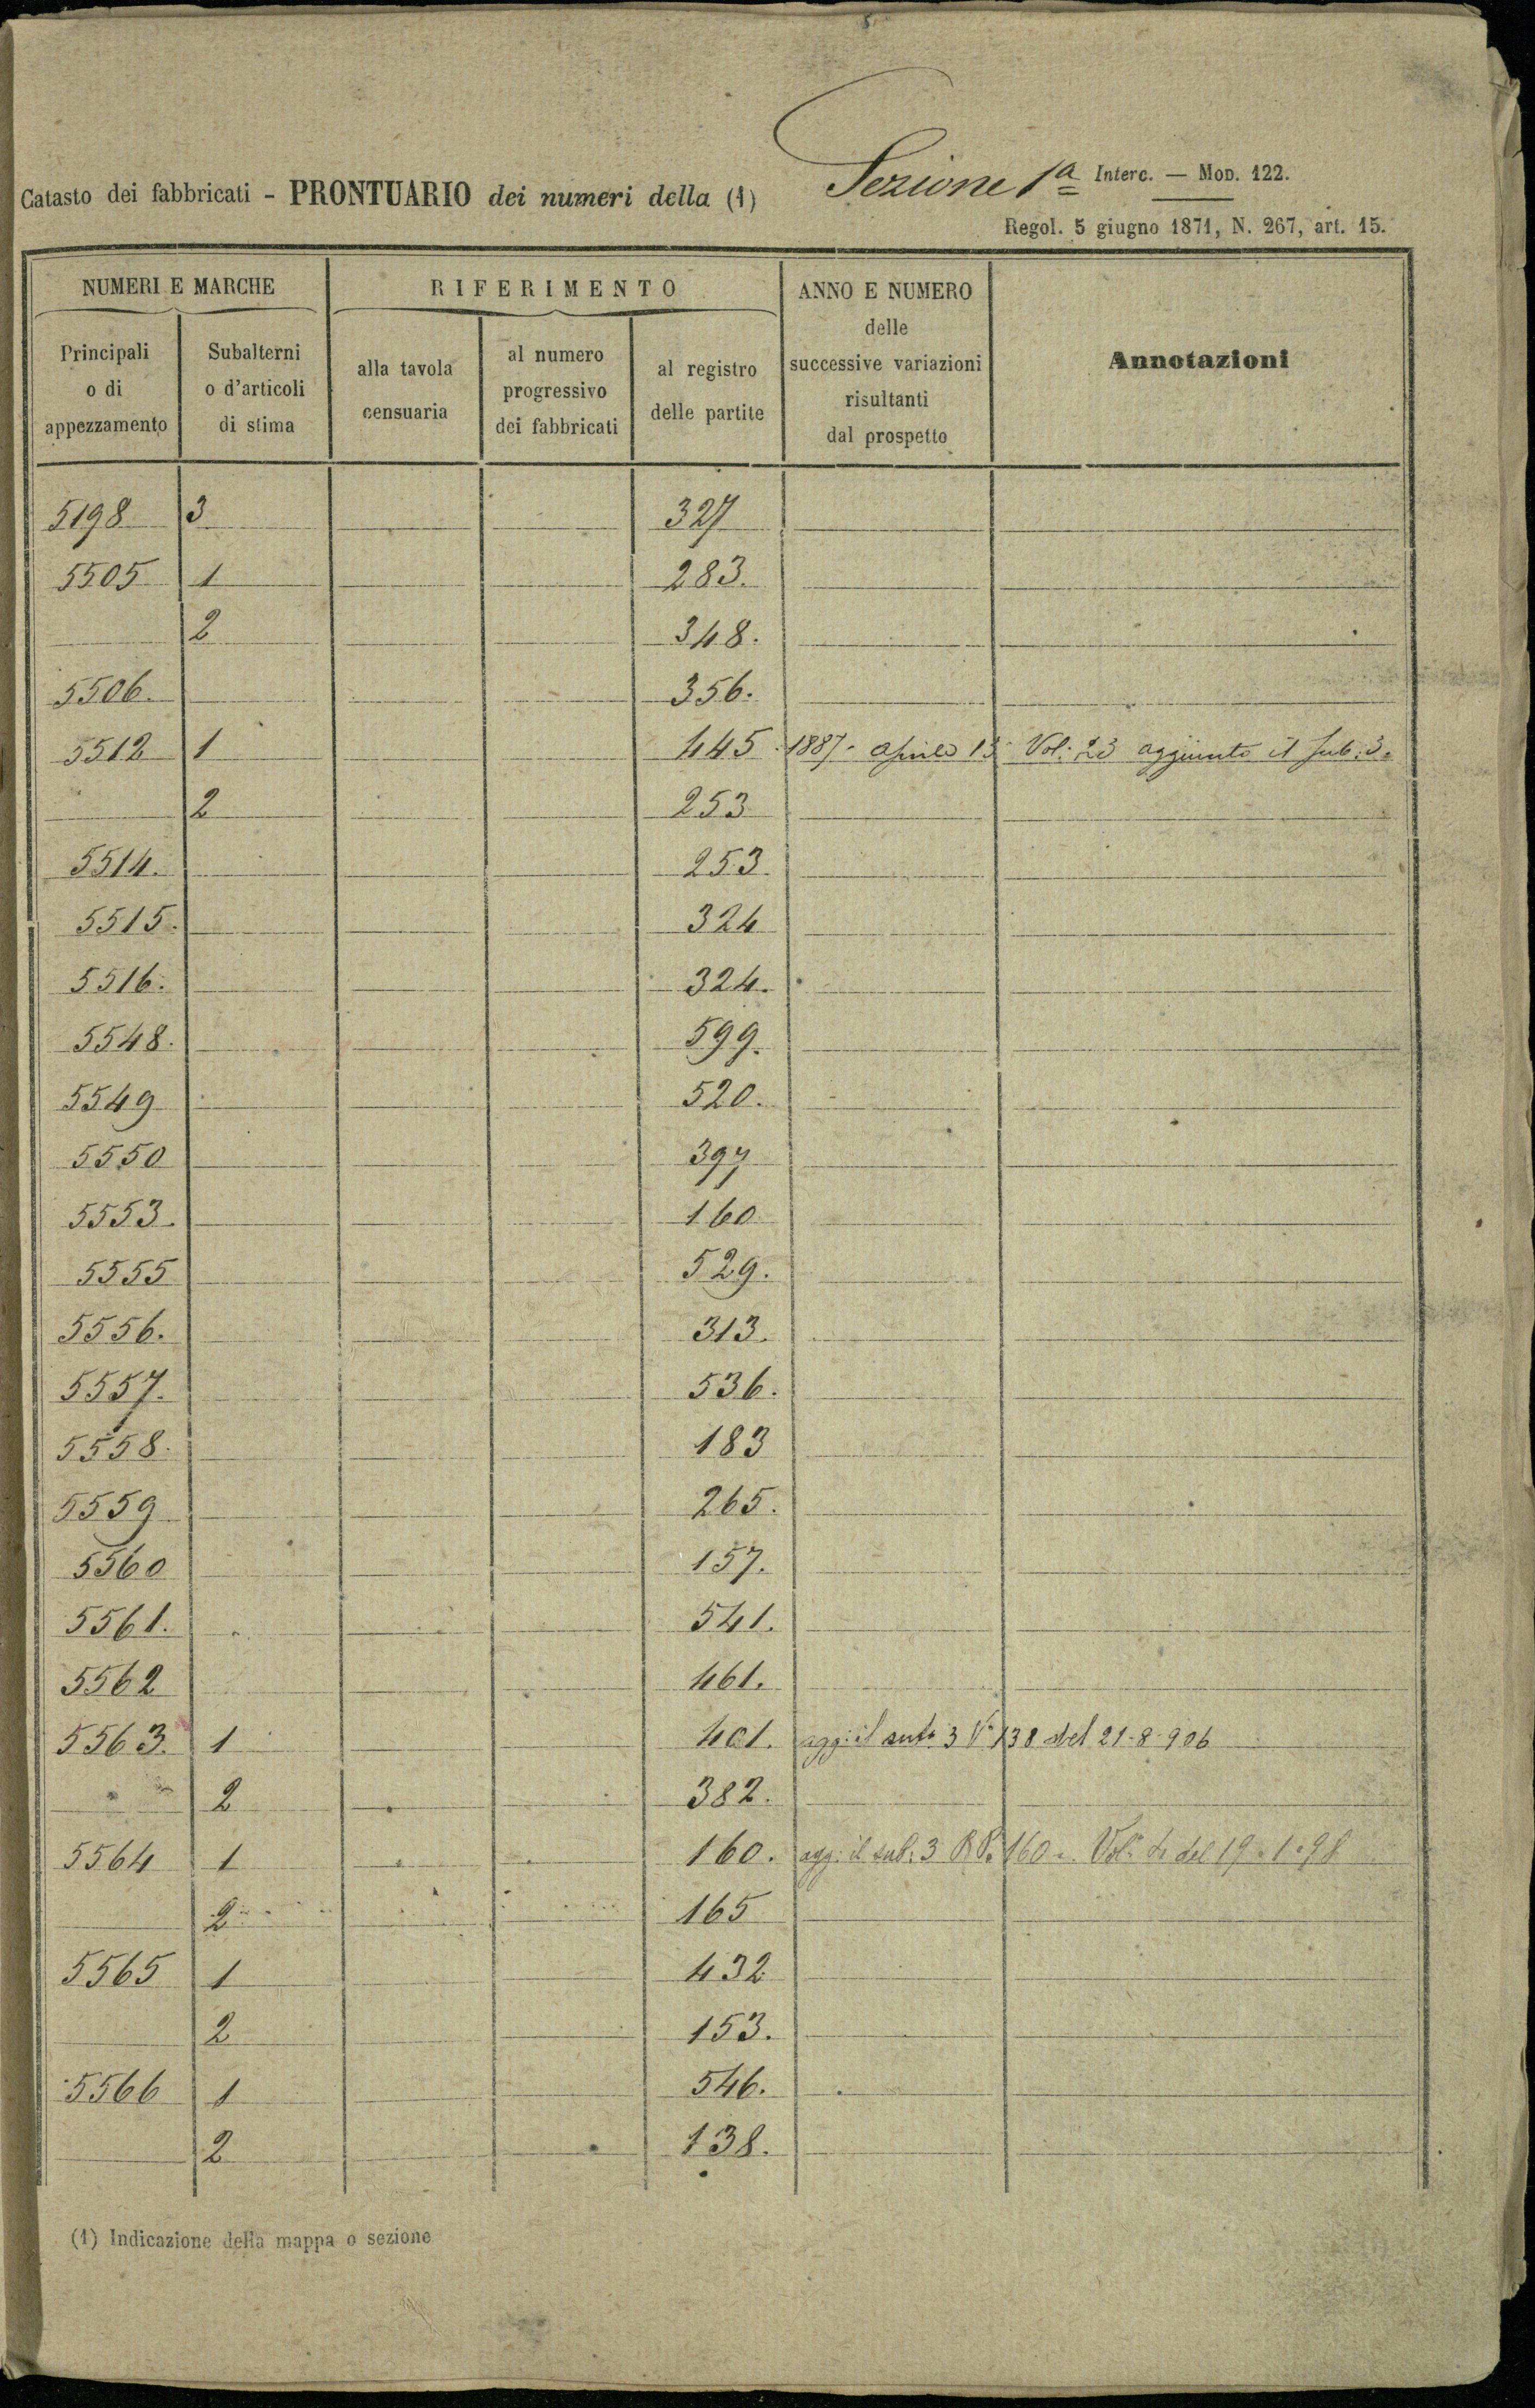 Sezione 1a Interc. — Mod. 122.
Catasto dei fabbricati - PRONTUARIO dei numeri della (1)
Regol. 5 giugno 1871, N. 267, art. 15.
NUMERI E MARCHE
RIFERIMENTO
ANNO E NUMERO
delle
successive variazioni
risultanti
dal prospetto
Annotazioni
Principali
o di
appezzamento
Subalterni
o d'articoli
di stima
alla tavola
censuaria
al numero
progressivo
dei fabbricati
al registro
delle partite
5198 3 327
5505 1 283.
2 348.
5506. 356.
5512 1 445. 1887. aprile 13 Vol. 23 aggiunto il sub. 3.
2 253
5514. 253.
5515. 324
5516. 324.
5548. 599.
5549 520.
5550 397
5553. 160
5555 529.
5556. 313.
5557. 536.
5558. 183
5559 265.
5560 157.
5561. 541.
5562 461.
5563. 1 401. agg: il sub. 3 V. 138 del 21-8-906
2 382.
5564 1 160. agg: il sub: 3 160 Vol. del 19.1.98
2 165
5565 1 432
2 153.
5566 1 546.
2 138.
(1) Indicazione della mappa o sezione